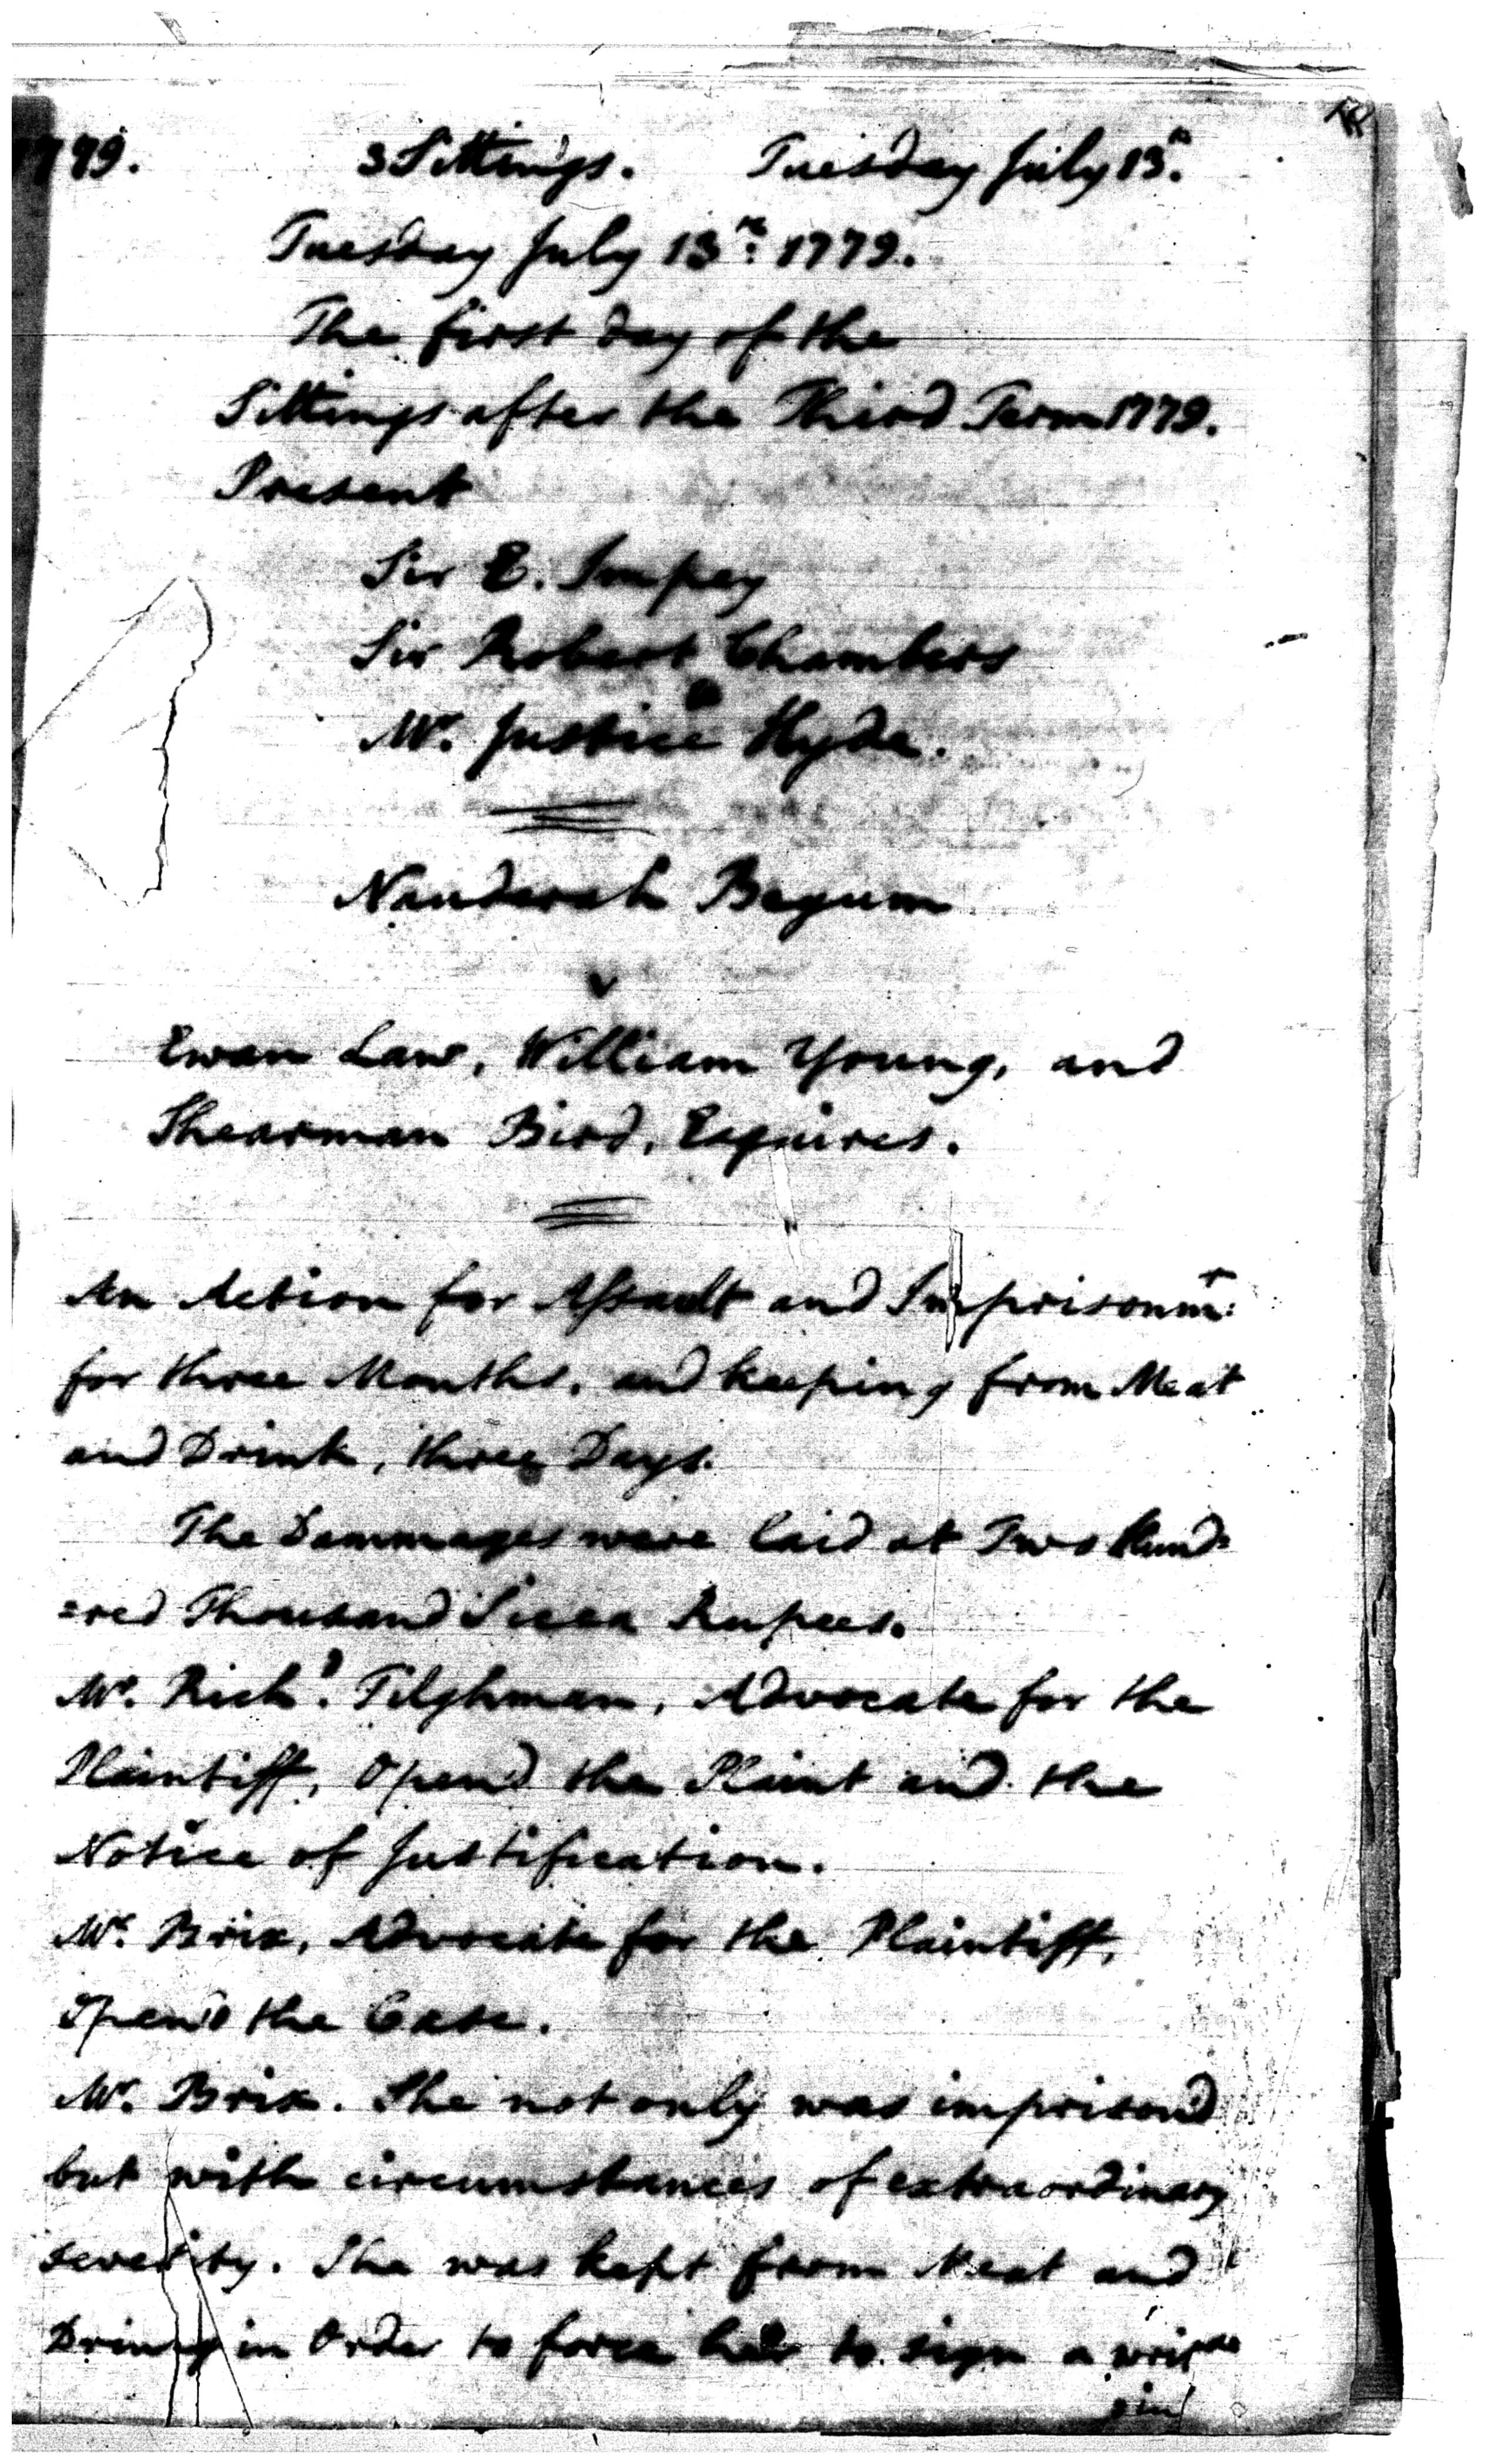 1779. 3 Sittings. Tuesday July 13th.
Tuesday July 13th. 1779.
The first day of the
Sittings after the Third Term 1779.
Present
Sir E. Impey
Sir Robert Chambers
Mr. Justice Hyde.
Nauderah Begum
v
Ewan Law, William Young, and
Shearman Bird, Esquires.
An Action for Assault and Imprisonmt:
for three Months, and keeping from Meat
and Drink, three Days.
The Dammages were laid at Two Hund=
=red Thousand Sicca Rupees.
Mr. Richd. Tilghman, Advocate for the
Plaintiff, Open'd the Plaint and the
Notice of Justification.
Mr. Brix, Advocate for the Plaintiff,
Open'd the Case.
Mr. Brix. She not only was imprison'd
but with circumstances of extraordinary
severity. She was kept from Meat and
in Order to force her to sign a